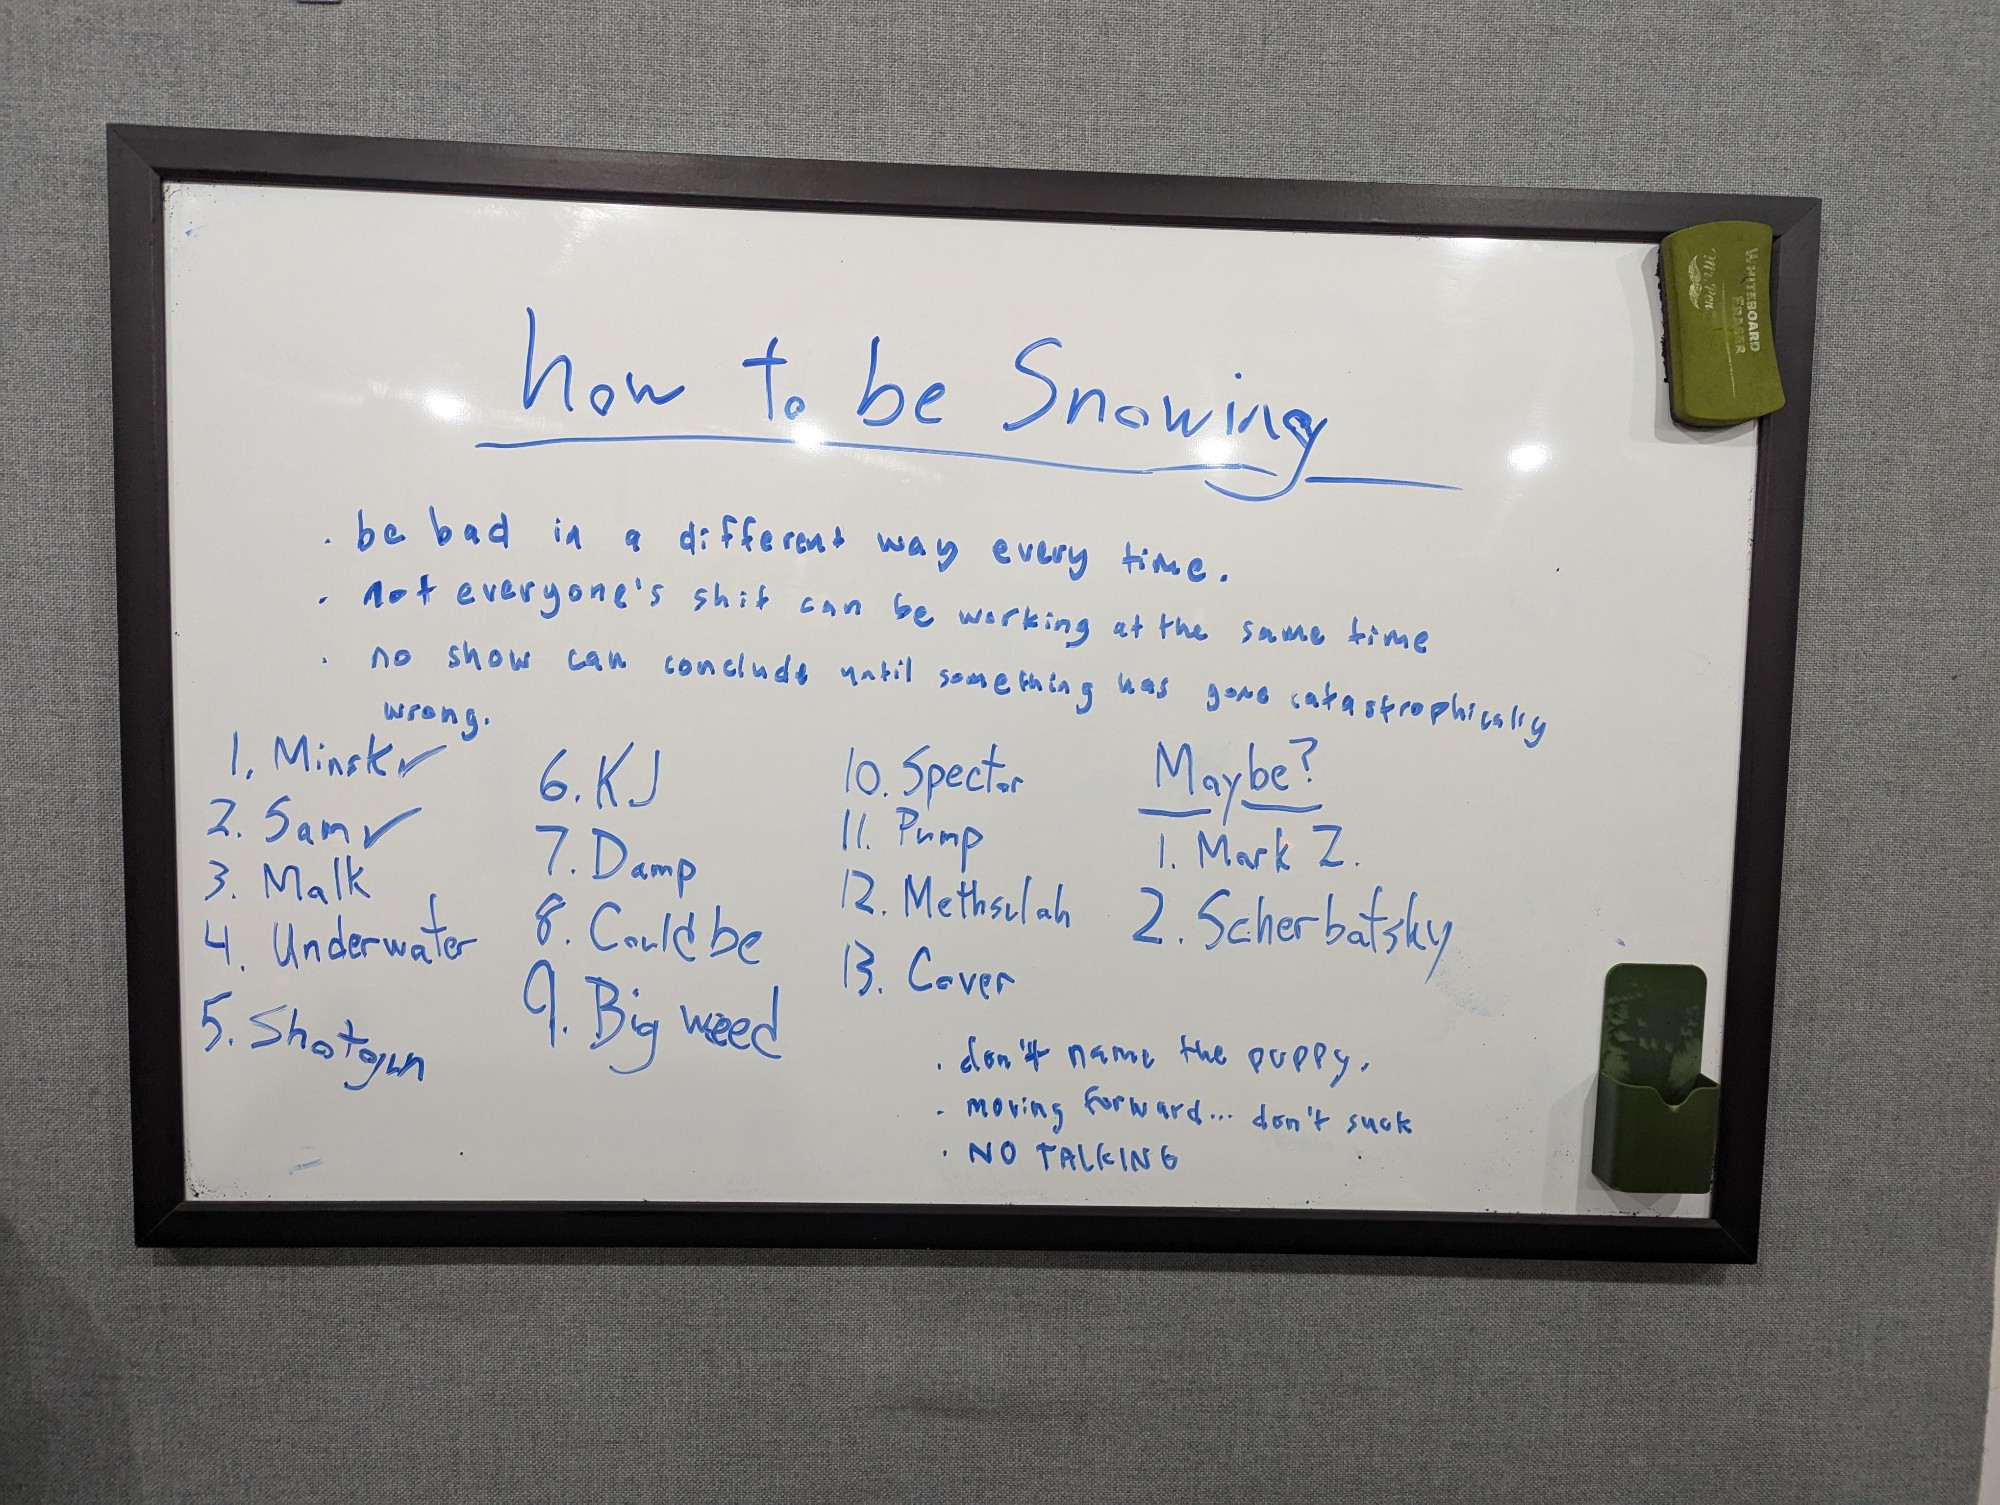 how to be Snowing
. be bad in a different way every time.
. not everyone's shit can be working at the same time
. no show can conclude until something has gone catastrophically
wrong.
1. Minsk ✓
2. Sam ✓
3. Malk
4. Underwater
5. Shotgun
6. KJ
7. Damp
8. Could be
9. Big weed
10. Spector
11. Pump
12. Methsulah
13. Cover
Maybe?
1. Mark Z.
2. Scherbatsky
. don't name the puppy.
. moving forward... don't suck
. NO TALKING
WHITEBOARD
ERASER
Mr. Pen